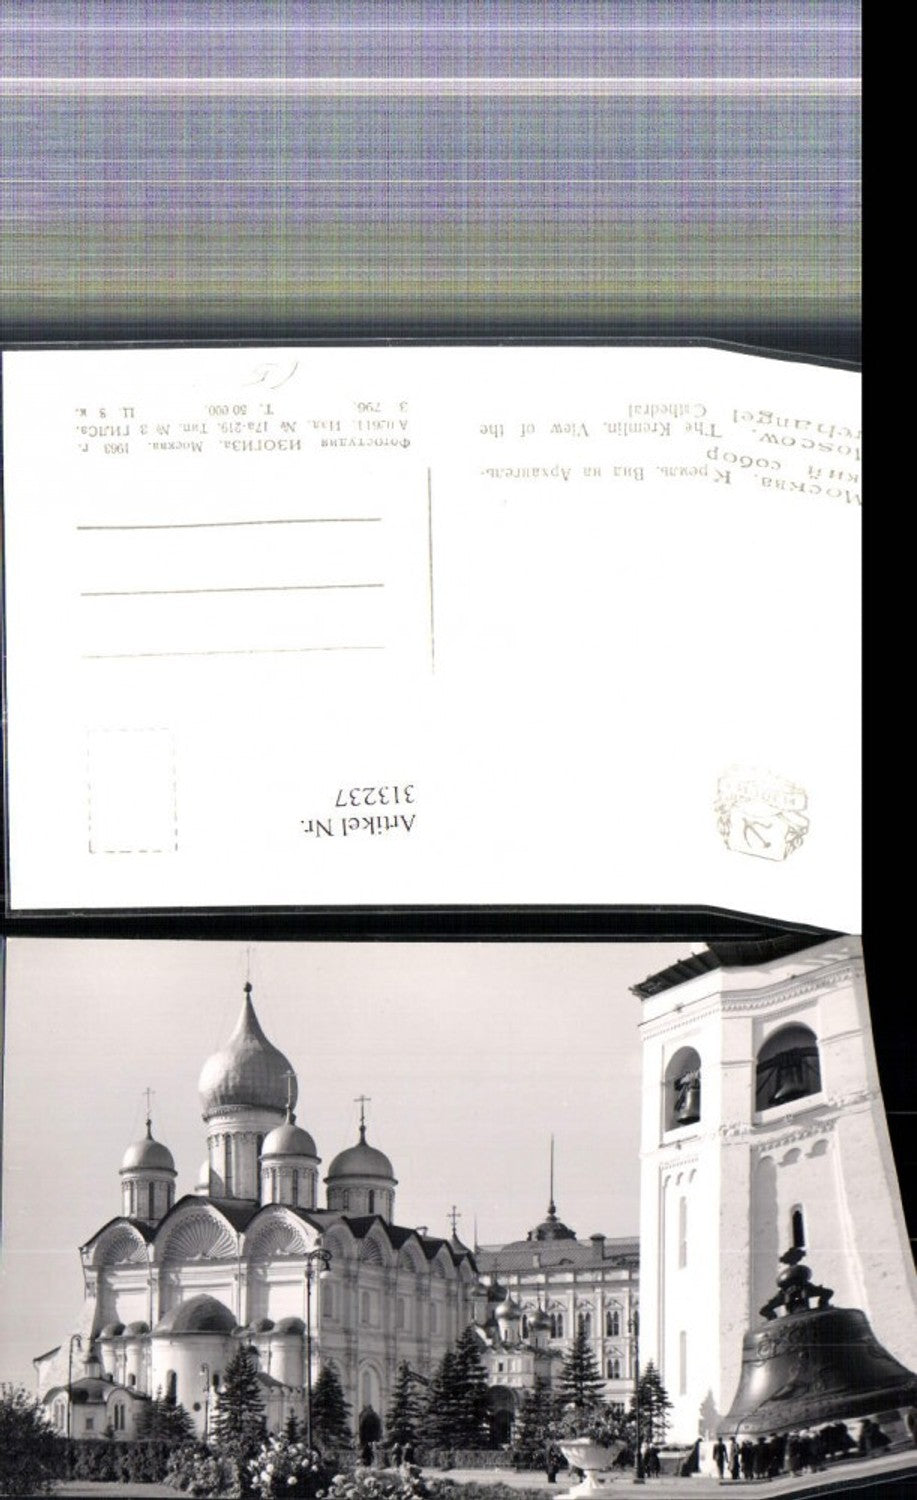 Москва. Кремль. Вид на Архангель-
ский собор
Moscow. The Kremlin. View of the
Archangel Cathedral
Фотостудия ИЗОГИЗа. Москва. 1963 г.
Изд. № 17а-219. Тип. № 3 ГИЛСа.
З 796. Т. 50 000. Ц. 8 к.
Artikel Nr.
313237